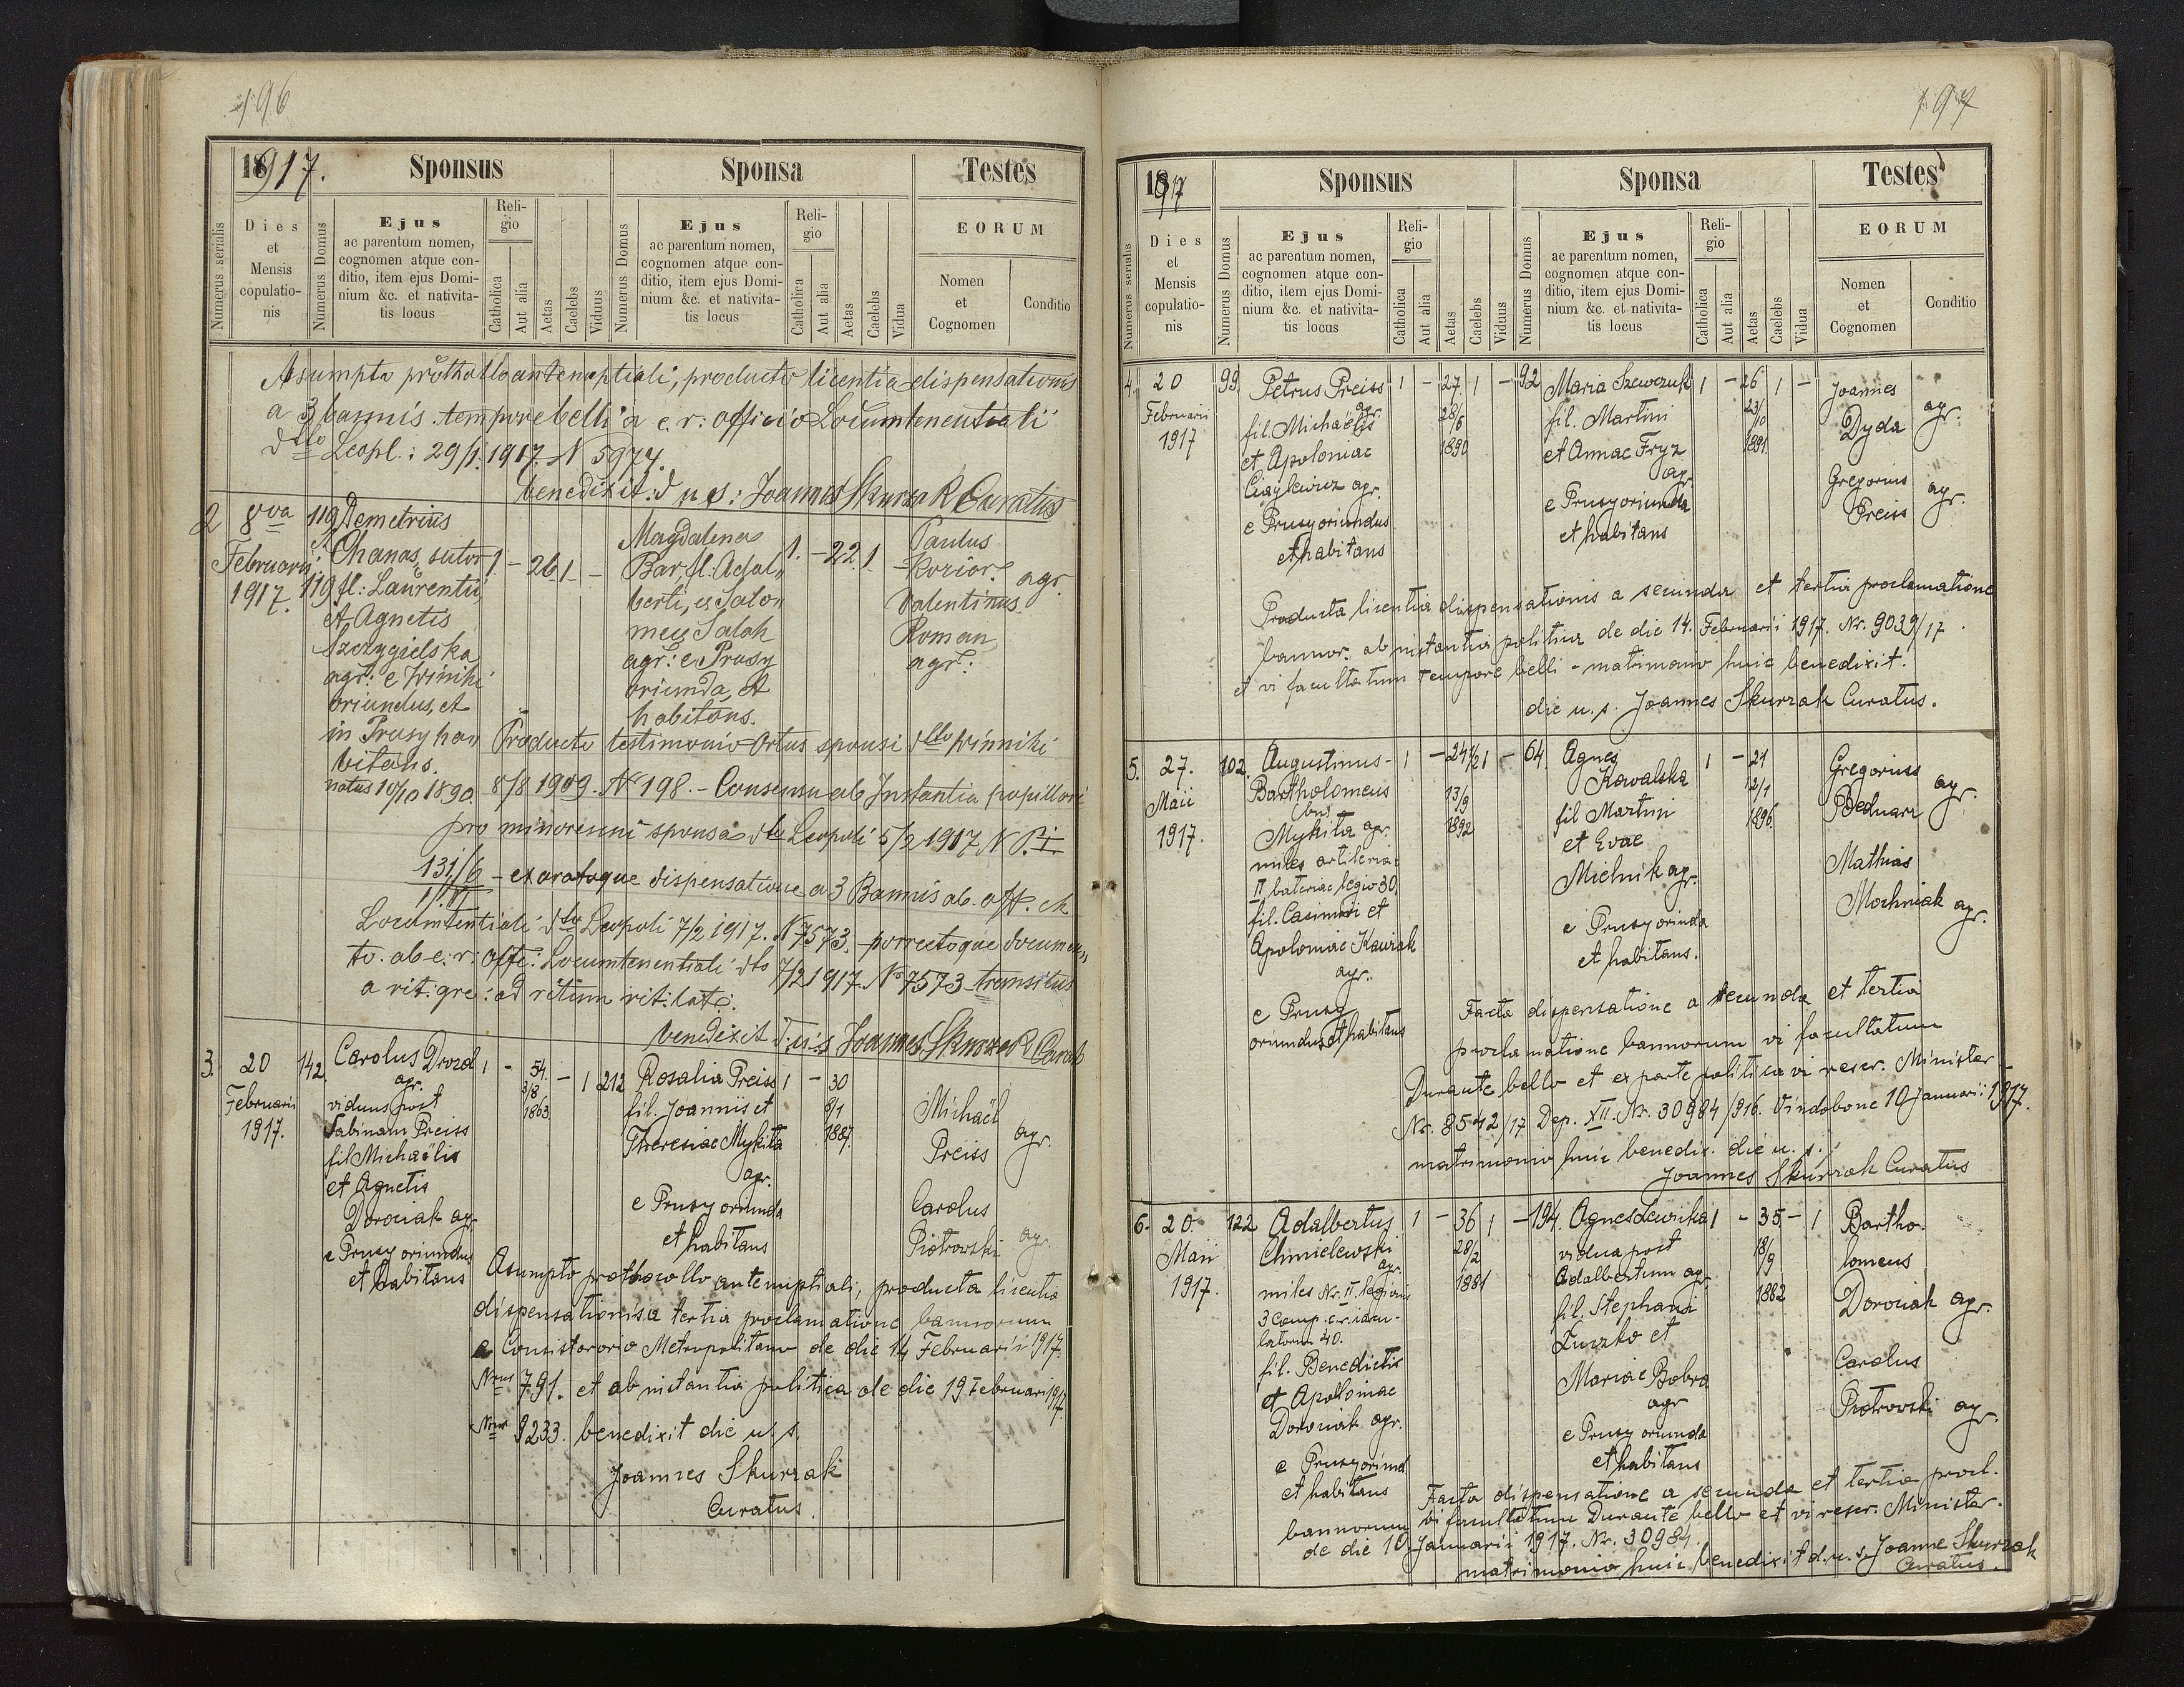 196
1917.
Sponsus
Sponsa
Testes
Numerus serialis
Dies
et
Mensis
copulatio-
nis
Numerus Domus
Ejus
ac parentum nomen,
cognomen atque con-
ditio, item ejus Domi-
nium &c. et nativita-
tis locus
Reli-
gio
Catholica
Aut alia
Aetas
Caelebs
Viduus
Numerus Domus
Ejus
ac parentum nomen,
cognomen atque con-
ditio, item ejus Domi-
nium &c. et nativita-
tis locus
Reli-
gio
Catholica
Aut alia
Aetas
Caelebs
Vidua
EORUM
Nomen
et
Cognomen
Conditio
Asumpto prothollo antenuptiali, producta licentia dispensationis
a 3 bannis tempore belli a c. r: officio Locumtenentiali
dtto Leopl.: 29/1. 1917. N 5974.
benedixit: d u s: Joannes Skurzak Curatus
2
8va
Februarii
1917.
119
119
Demetrius
Chanas, sutor
fil: Laurentii,
et Agnetis
Szczygielska
agr: e Winiki
oriundus, et
in Prusy ha„
bitans.
natus 10/10 1890.
1 - 26 1 -
Magdalena
Bar, fil. Adal„
berti, et Salo„
meu Salak
agr: e Prusy
oriunda, et
habitans.
1. - 22 1
Paulus
Korior. agr.
Valentinus
Roman
agr.
Producto testimonio Ortus sponsi dtto Winniki
8/8 1909. N 198. - Consensu ab Instantia pupillari
pro minorenni sponsa dto Leopoli 5/2 1917 N P. I.
131/6
1/17
- exaratoque dispensatione a 3 Bannis ab. off. ck
Locumtentiali dto Leopoli 7/2 1917. N 7573. porrectoque documen„
to. ab c. r: offi: Locumtenentiali dto 7/2 1917. No 7573 transitus
a rit. gre: ad ritum rit. lat:
benedixit d: u: s Joannes Skurzak Curat
3.
20
Februarii
1917.
142.
Carolus Drozd
agr.
viduus post
Sabinam Preiss
fil Michaëlis
et Agnetis
Doroziak agr.
e Prusy oriundus
et habitans
1 - 54. - 1
3/8
1863
212
Rosalia Preiss
fil. Joannis et
Theresiae Mykita
agr.
e Prusy oriunda
et habitans
1 - 30
8/1
1887.
Michaël
Preiss
agr.
Carolus
Piotrowski
agr.
Asumpto prothocollo antenuptiali, producta licentia
dispensationis a tertia proclamatione bannorum
a Consistororio Metropolitano de die 14 Februarii 1917.
Nrus 791. et ab instantia politica de die 19 Februarii 1917
Nrus 9233. benedixit die u. s.
Joannes Skurzak
Curatus.
197
1917
Sponsus
Sponsa
Testes
Numerus serialis
Dies
et
Mensis
copulatio-
nis
Numerus Domus
Ejus
ac parentum nomen,
cognomen atque con-
ditio, item ejus Domi-
nium &c. et nativita-
tis locus
Reli-
gio
Catholica
Aut alia
Aetas
Caelebs
Viduus
Numerus Domus
Ejus
ac parentum nomen,
cognomen atque con-
ditio, item ejus Domi-
nium &c. et nativita-
tis locus
Reli-
gio
Catholica
Aut alia
Aetas
Caelebs
Vidua
EORUM
Nomen
et
Cognomen
Conditio
4.
20
Februarii
1917
99
Petrus Preiss
agr.
fil. Michaëlis
et Apoloniae
agr.
e Prusy oriundus
et habitans
1 - 27. 1 -
28/6
1890
92
Maria Szewczuk
fil. Martini
et Annae Fryz
agr.
e Prusy oriunda
et habitans
1 - 26 1 -
23/10
1891.
Joannes
Dyda
agr.
Gregorius
Preiss
agr.
Producta licentia dispensationis a secunda et tertia proclamatione
bannor. ab instantia politica de die 14. Februarii 1917. Nr. 9039/17.
et vi facultatum tempore belli - matrimonio huic benedixit.
die u. s. Joannes Skurzak Curatus.
5.
27.
Maii
1917.
102.
Augustinus-
Bartholomeus
(bin)
Mykita agr.
miles artileriae
II bateriae legio 30,
fil. Casimiri et
Apoloniae Kawiak
agr.
e Prusy
oriundus et habitans
1 - 24 1/2 1 -
13/9
1892
64.
Agnes
Kowalska
fil Martini
et Evae
Mielnik agr.
e Prusy orinda
et habitans.
1 - 21
12/1
1896.
Gregorius
Bednarz
agr.
Mathias
Mochniak agr.
Facta dispensatione a secunda et tertia
proclamatione bannorum vi facultatum
Durante bello et ex parte politica vi rescr. Minister
Nr. 8542/17 Dep. XII. Nr. 30984/916. Vindobone 10 Januari: 1917.
matrimonio huic benedix. die u. s.
Joannes Skurzak Curatus
6.
20.
Maii
1917.
122
Adalbertus
Chmielewski
agr.
miles Nr. II. legionis
3 Comp. c. r. iacu-
latorum 40.
fil. Benedictis
et Apoloniae
Doroziak agr.
e Prusy oriund
et habitans
1 - 36 1 -
28/2
1881
194.
Agnes Lewicka
vidua post
Adalbertum agr.
fil. Stephani
Łuszko et
Mariae Bobra
agr
e Prusy oriunda
et habitans
1 - 35 - 1
18/9
1882
Bartho-
lomeus
Doroziak agr.
Carolus
Piotrowski agr.
Facta dispensatione a secunda et tertia procl.
bannorum vi facultatum Durante bello et vi rescr. Minister.
de die 10 Januarii 1917. Nr. 30984.
matrimonio huic benedixit d. u. s. Joanne Skurzak
Curatus.